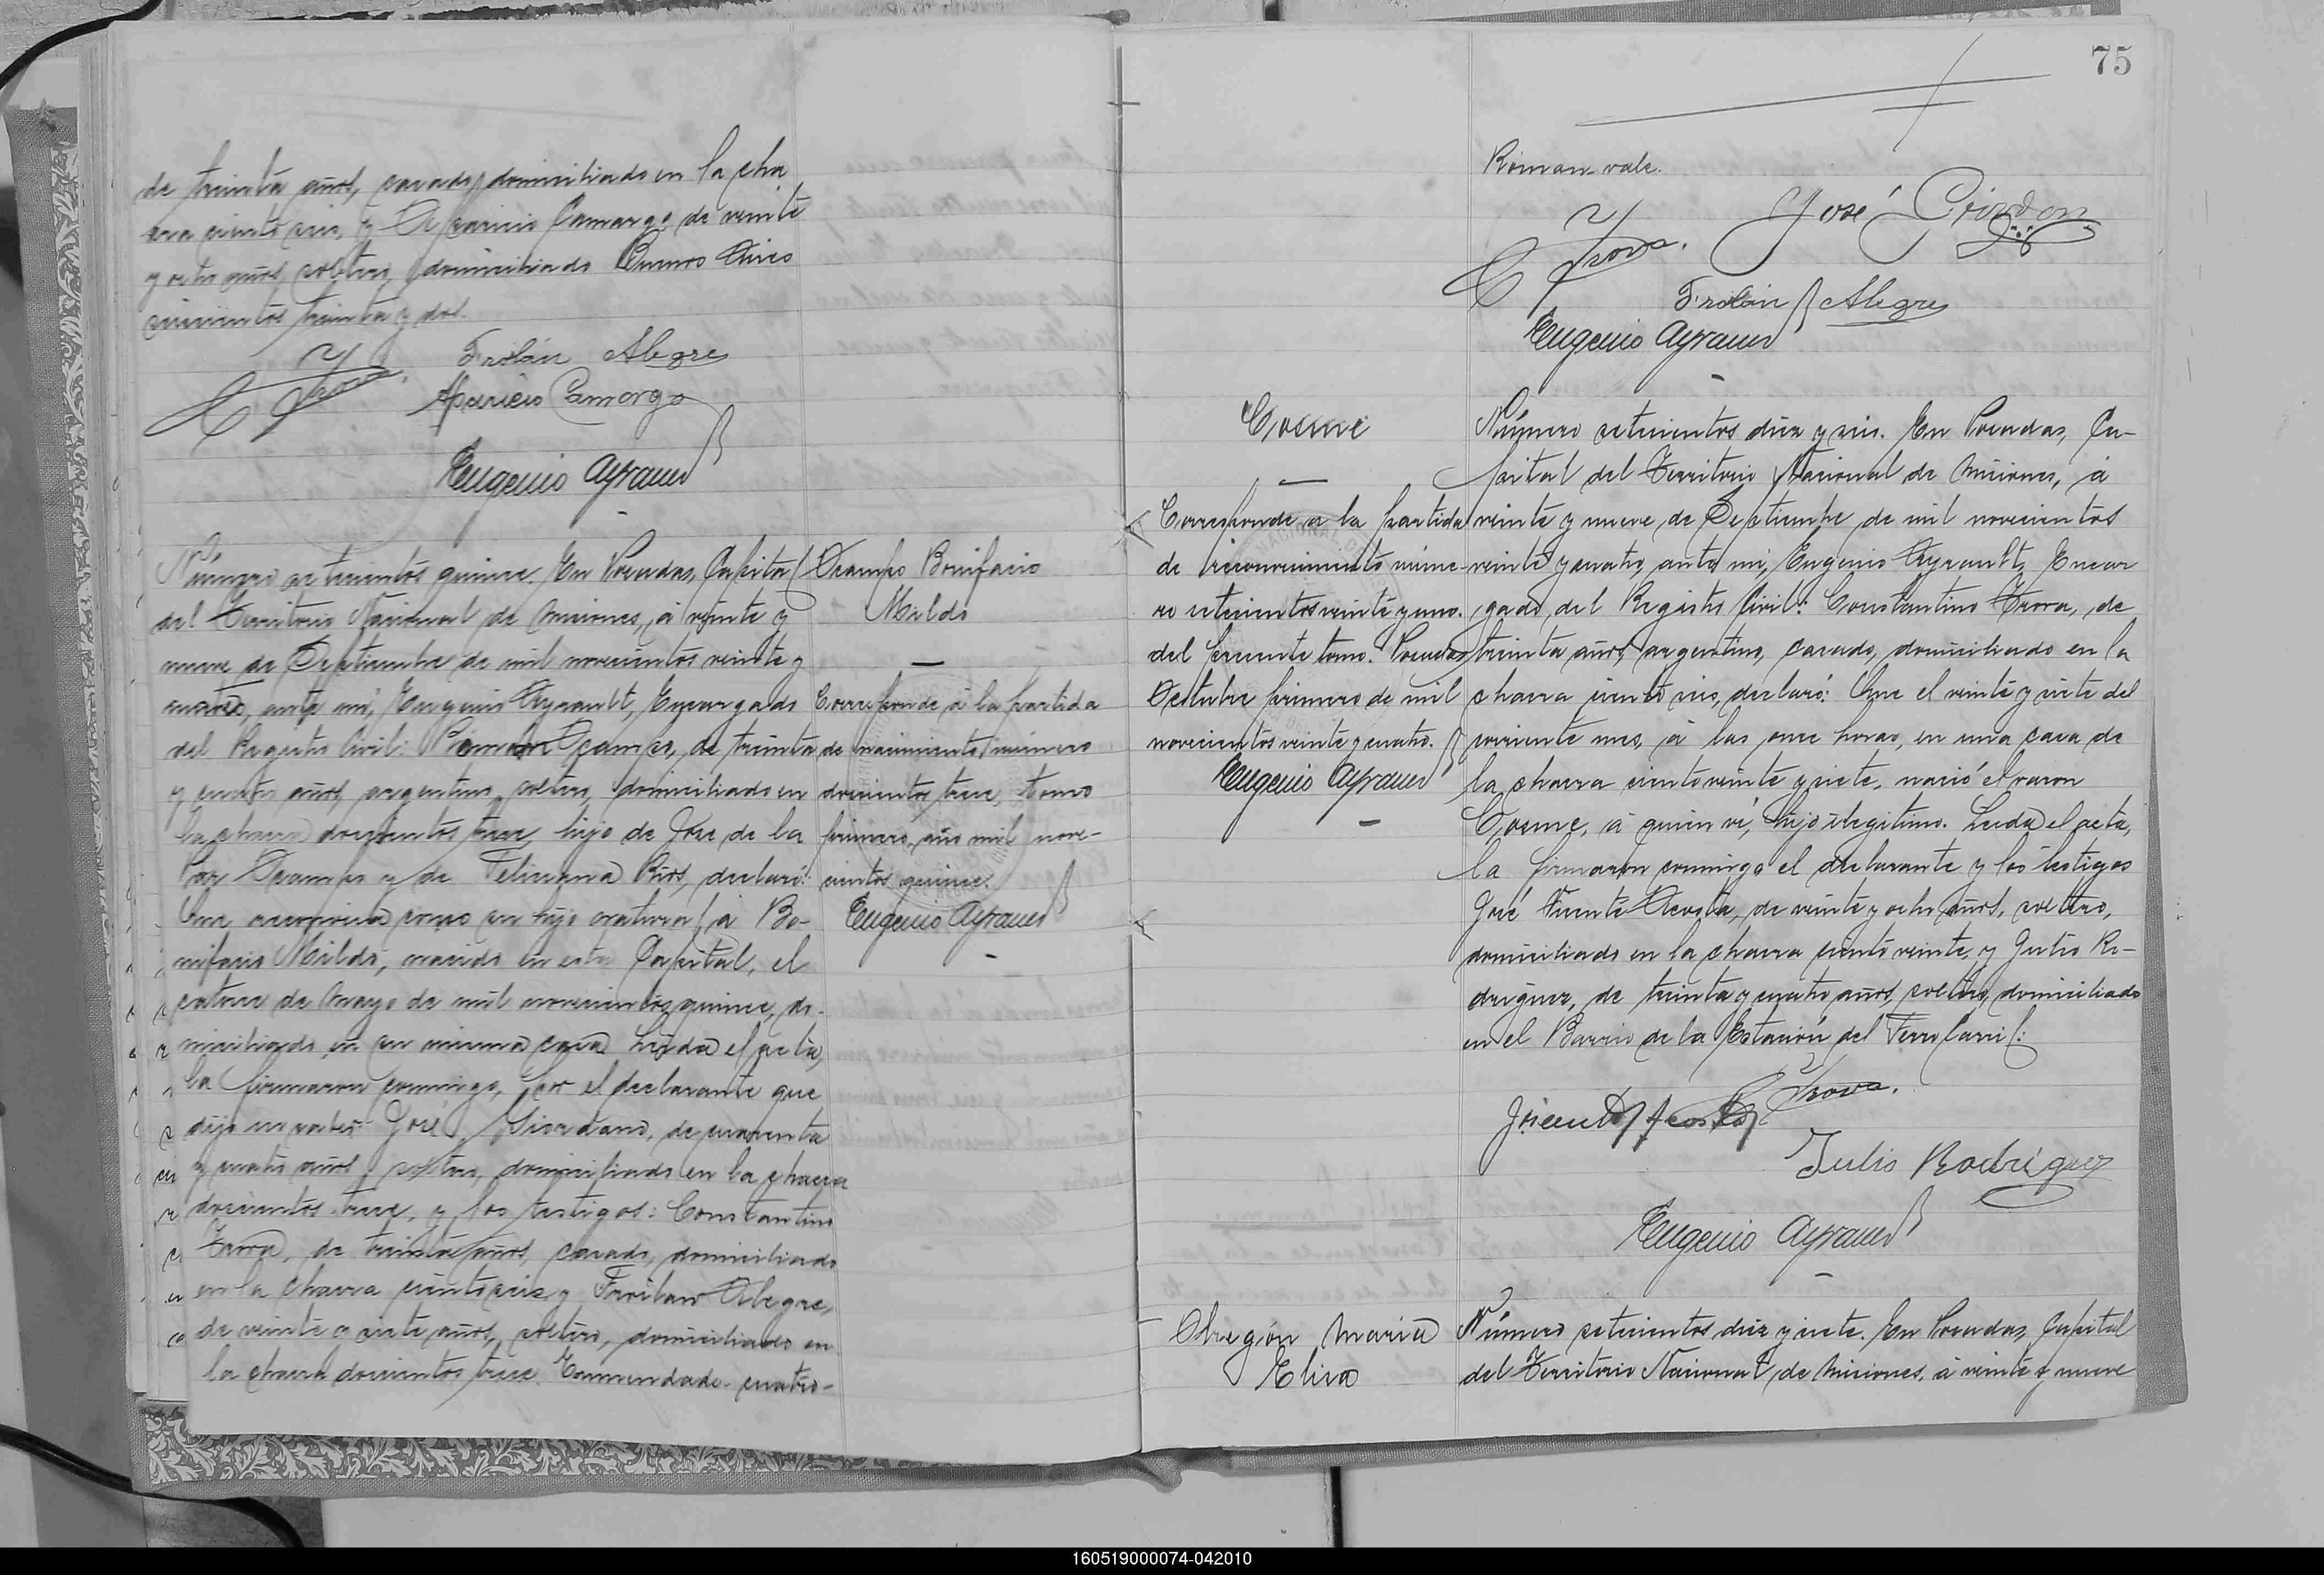 de treinta años, casado, domiciliado en la cha
cra ciento seis, y Aparicio Camargo, de veinte
y ocho años, soltero, domiciliado Buenos Aires
seiscientos treinta y dos.
Froilán Alegre
Aparicio Camargo
Eugenio Ayrault
Número setecientos quince. En Posadas, Capital
del Territorio Nacional de Misiones, á veinte y
nueve de Septiembre de mil novecientos veinte y
cuatro, ante mí, Eugenio Ayrault, Encargado
del Registro Civil: Román Ocampo, de treinta
y cuatro años, argentino, soltero, domiciliado en
la chacra doscientos trece, hijo de José de la
Paz Ocampo y de Feliciana Ríos, declaró:
Que reconocía como su hijo natural á Bo-
nifacio Milds, nacido en esta Capital, el
catorce de Mayo de mil novecientos quince, do-
miciliado en su misma casa. Leída el acta,
la firmaron conmigo, por el declarante que
dijo no saber José Giordano, de cuarenta
y cuatro años, soltero, domiciliado en la chacra
doscientos trece, y los testigos: Constantino
Zrova, de treinta años, casado, domiciliado
en la chacra ciento seis y Froilan Alegre,
de veinte y siete años, soltero, domiciliado en
la chacra doscientos trece. Enmendado - cuatro -
Ocampo Bonifacio
Milds
Corresponde á la partida
de nacimiento número
doscientos trece, tomo
primero, año mil nove-
cientos quince.
Eugenio Ayrault
75
Roman - vale.
José
Froilán Alegre
Eugenio Ayrault
Cosme
Corresponde a la partida
de reconocimiento núme-
ro setecientos veinte y uno.
del presente tomo. Posadas
Octubre primero de mil
novecientos veinte y cuatro.
Eugenio Ayrault
Número setecientos diez y seis. En Posadas, Ca-
pital del Territorio Nacional de Misiones, á
veinte y nueve de Septiembre de mil novecientos
veinte y cuatro, ante mí, Eugenio Ayrault, Encar
gado del Registro Civil: Constantino Zrova, de
treinta años, argentino, casado, domiciliado en la
chacra ciento seis, declaró: Que el veinte y siete del
corriente mes, á las once horas, en una casa de
la chacra ciento veinte y siete, nació el varon
Cosme, á quien ví, hijo ilegítimo. Leida el acta,
la firmaron conmigo el declarante y los testigos
José Vicente Acosta, de veinte y ocho años, soltero,
domiciliado en la chacra ciento veinte, y Julio Ro-
dríguez, de treinta y cuatro años, soltero, domiciliado
en el Barrio de la Estación del Ferro Carril:
Jvicente Acosta
Julio Rodríguez
Eugenio Ayrault
Obregón María
Elisa
Número setecientos diez y siete. En Posadas, Capital
del Territorio Nacional de Misiones, á veinte y nueve
160519000074-042010